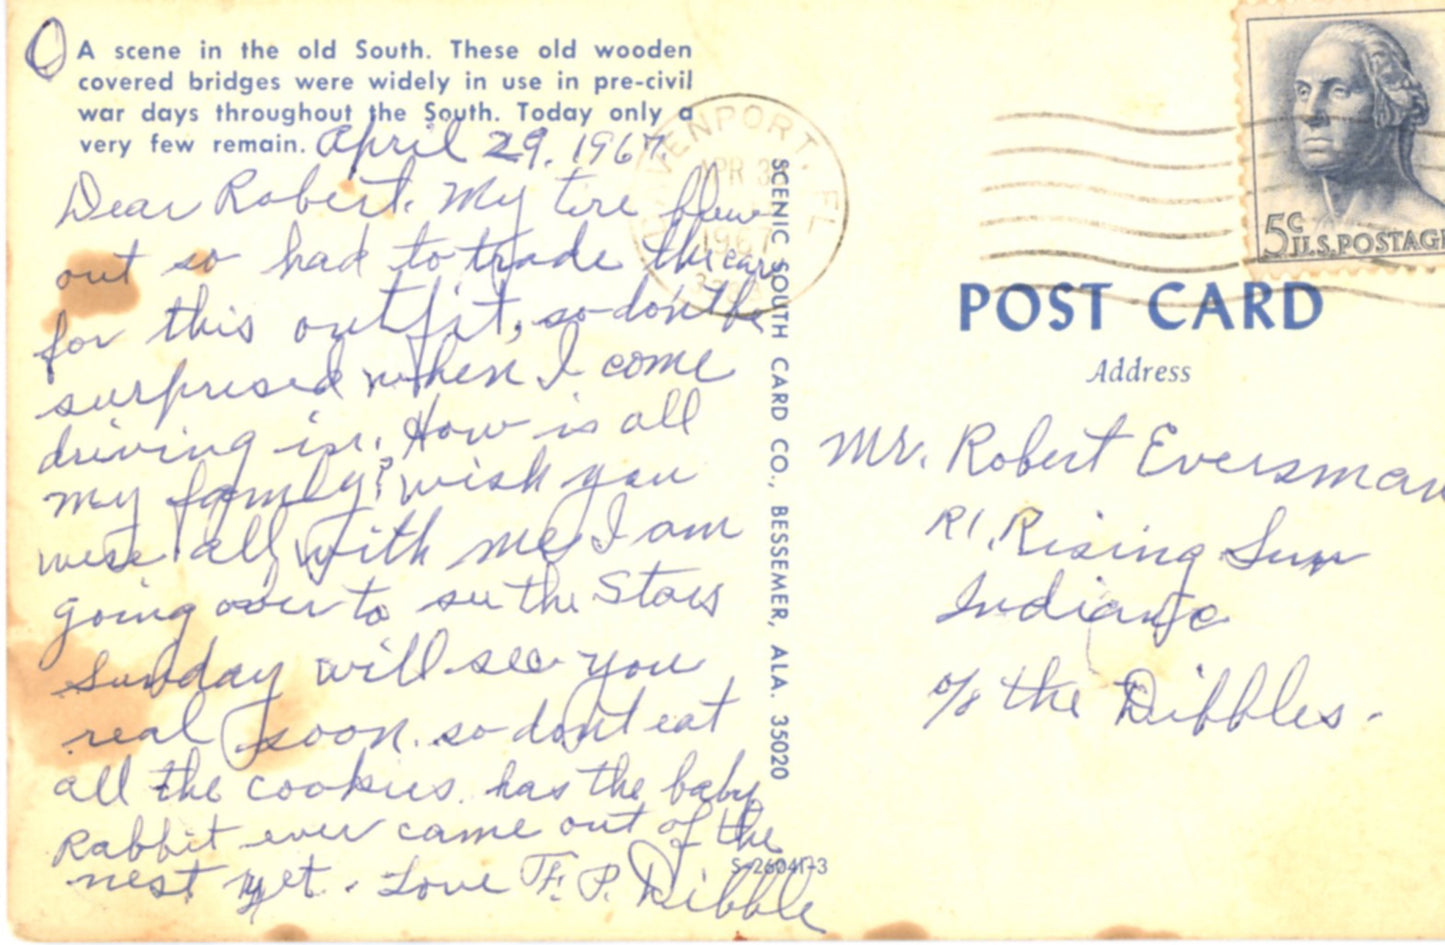 A scene in the old South. These old wooden
covered bridges were widely in use in pre-civil
war days throughout the South. Today only a
very few remain.
April 29. 1967
Dear Robert. My tire blew
out so had to trade the car
for this outfit, so don't be
surprised when I come
driving in. How is all
my family? wish you
were all with me I am
going over to see the Stars
Sunday will see you
real soon. so dont eat
all the cookies. has the baby
Rabbit ever came out of the
nest yet. Love F. P. Dibble
S-26041-3
SCENIC SOUTH CARD CO., BESSEMER, ALA. 35020
VENPORT, FL
APR
1967
5c
U.S. POSTAG
POST CARD
Address
Mr. Robert Eversman
R1, Rising Sun
Indiana
c/o the Dibbles.